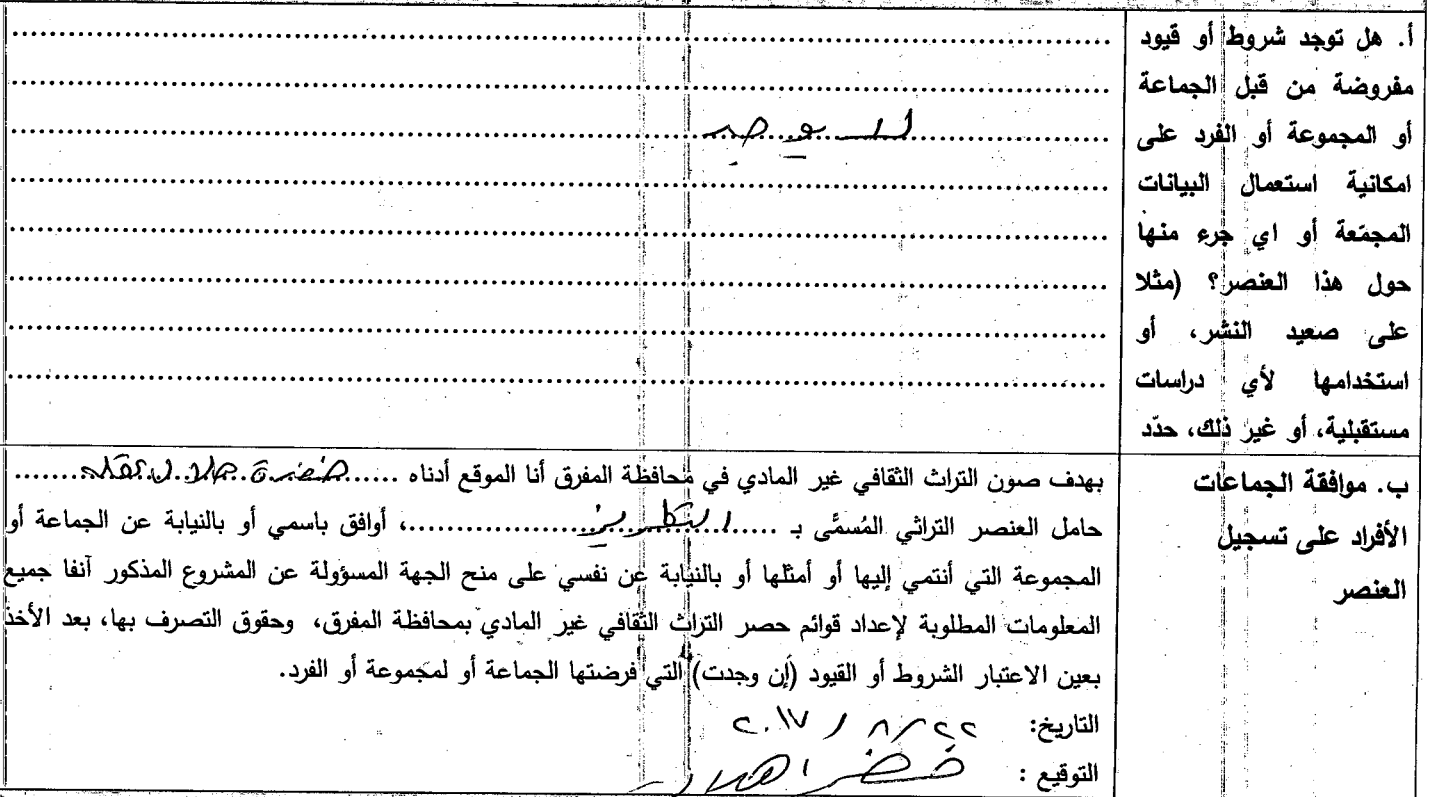 أ. هل توجد شروط أو قيود
مفروضة من قبل الجماعة
أو المجموعة أو الفرد على
امكانية استعمال البيانات
المجمّعة أو اي جرء منها
حول هذا العنصر؟ (مثلا
على صعيد النشر، أو
استخدامها لأي دراسات
مستقبلية، أو غير ذلك، حدّد
لا يوجد
ب. موافقة الجماعات
الأفراد على تسجيل
العنصر
بهدف صون التراث الثقافي غير المادي في محافظة المفرق أنا الموقع أدناه ......
حامل العنصر التراثي المُسمَّى ب ...... التطريز ......، أوافق باسمي أو بالنيابة عن الجماعة أو
المجموعة التي أنتمي إليها أو أمثلها أو بالنيابة عن نفسي على منح الجهة المسؤولة عن المشروع المذكور آنفا جميع
المعلومات المطلوبة لإعداد قوائم حصر التراث الثقافي غير المادي بمحافظة المفرق، وحقوق التصرف بها، بعد الأخذ
بعين الاعتبار الشروط أو القيود (إن وجدت) التي فرضتها الجماعة أو لمجموعة أو الفرد.
التاريخ: ٢٢ / ٨ / ٢٠١٧
التوقيع :